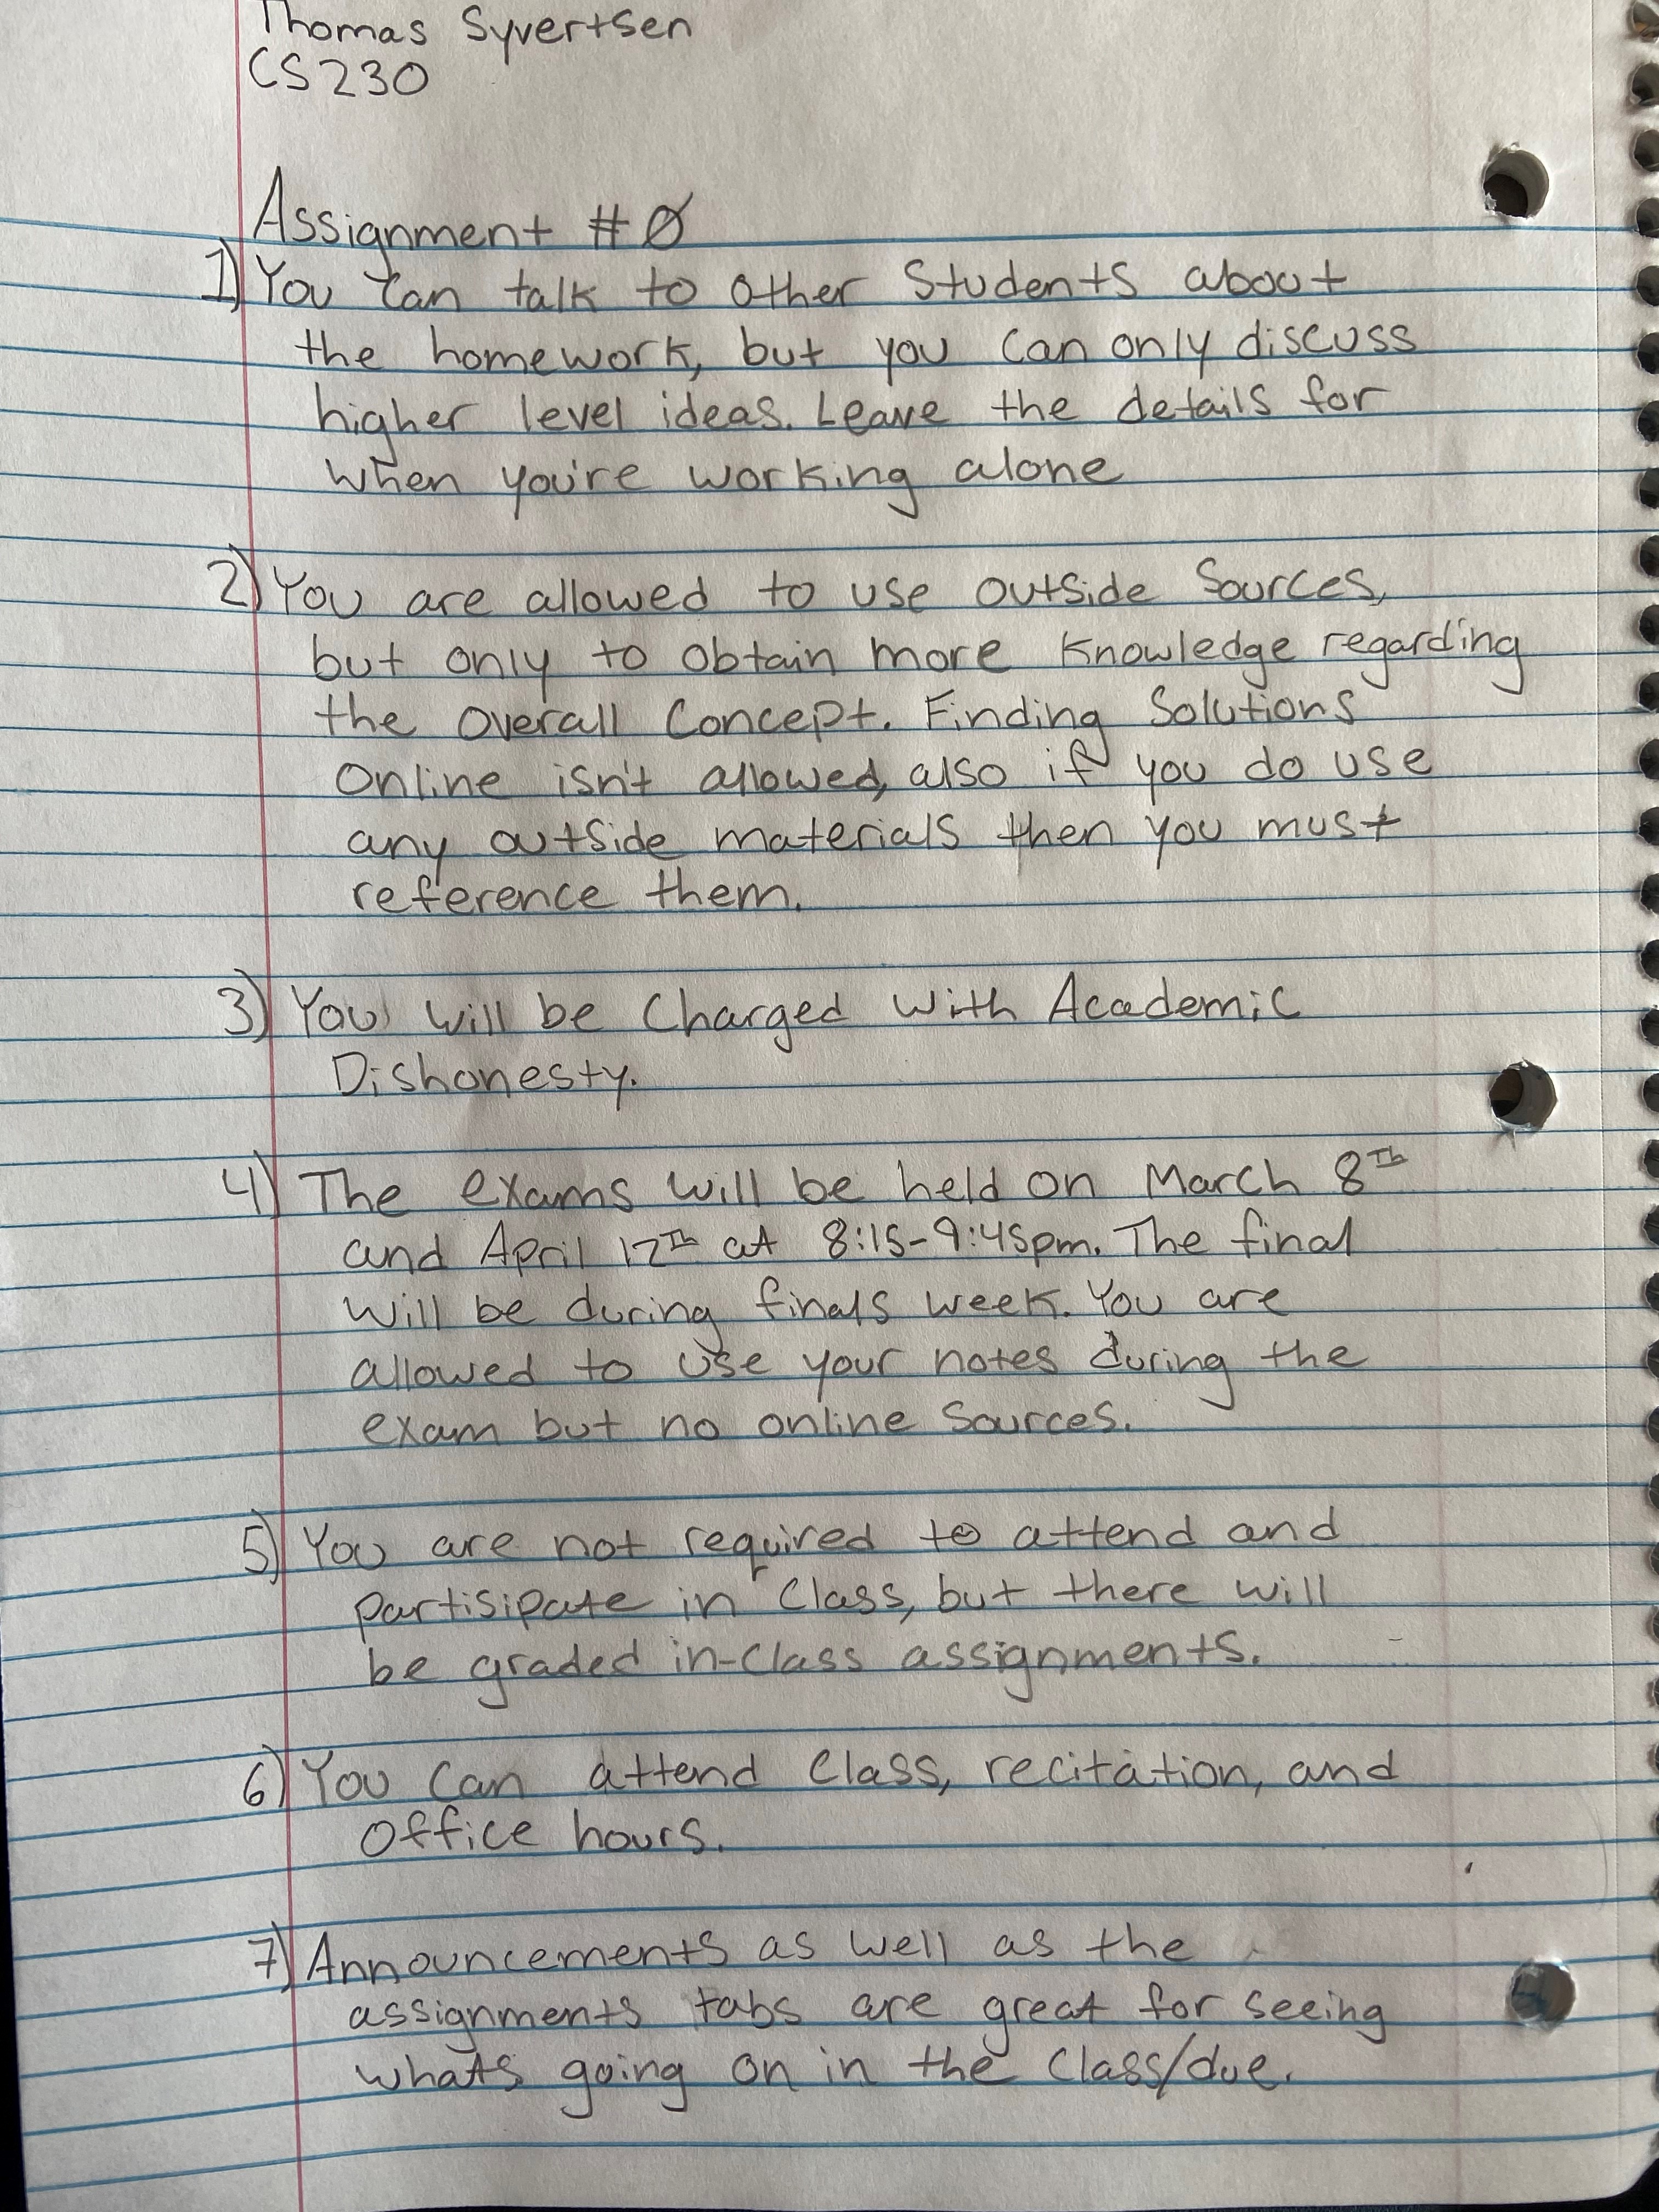 Thomas Syvertsen
CS230
Assignment #0
1) You can talk to other students about
the homework, but you can only discuss
higher level ideas. Leave the details for
when you're working alone
2) You are allowed to use outside sources,
but only to obtain more knowledge regarding
the overall concept. Finding solutions
online isn't allowed, also if you do use
any outside materials then you must
reference them.
3) You will be charged with Academic
Dishonesty.
4) The exams will be held on March 8th
and April 12th at 8:15-9:45pm. The final
will be during finals week. You are
allowed to use your notes during the
exam but no online sources.
5) You are not required to attend and
partisipate in class, but there will
be graded in-class assignments.
6) You can attend class, recitation, and
office hours.
7) Announcements as well as the
assignments tabs are great for seeing
whats going on in the class/due.